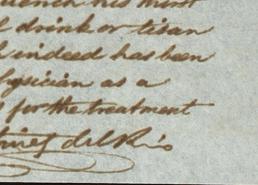 his
drink or tisan
indeed has been
physician as a
for the treatment
del Rio